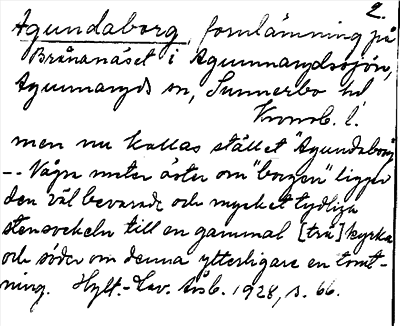 2.
Agundaborg, fornlämning på
Brånanäset i Agunnarydssjön,
Agunnaryds sn, Sunnerbo hd
Kronob. l.
men nu kallas stället "Agundaborg"
-- Några meter öster om "borgen" ligger
den väl bevarade och mycket tydliga
stensockeln till en gammal [trä]kyrka
och söder om denna ytterligare en tomt-
ning. Hylt.-Cav. årsb. 1928, s. 66.